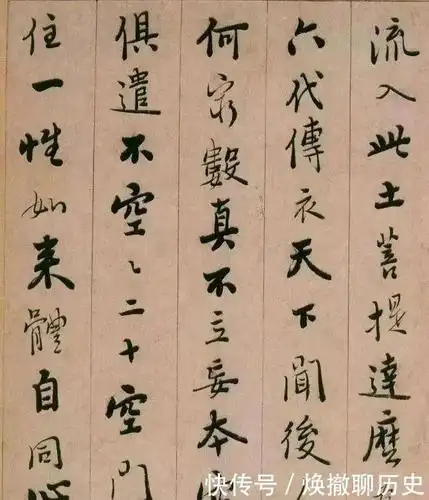 流入此土菩提達磨
六代傳衣天下聞後
何窮數真不立妄本
俱遣不空〻二十空門
住一性如來體自同心
快传号 / 焕撤聊历史